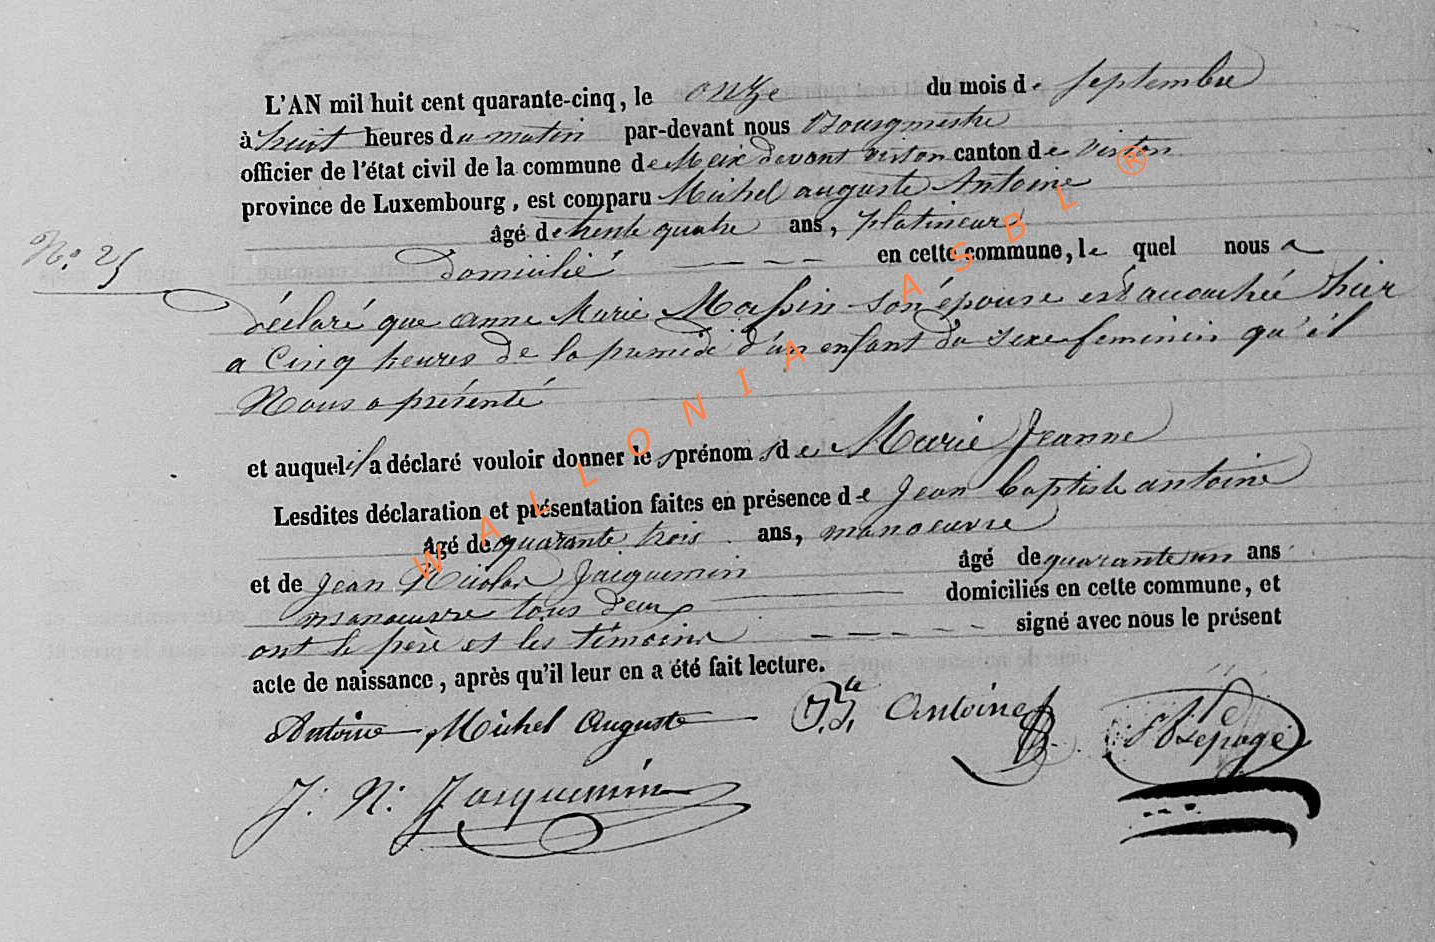 L'AN mil huit cent quarante-cinq, le onze du mois de Septembre
à huit heures du matin par-devant nous Bourgmestre
officier de l'état civil de la commune de Meix devant virton canton de virton
province de Luxembourg, est comparu Michel auguste Antoine
âgé de trente quatre ans, platineur
domicilié en cette commune, le quel nous a
No. 25
déclaré que anne Marie Massin son épouse est accouchée hier
a Cinq heures de la d'un enfant du sexe feminin qu'il
Nous a présenté
et auquel il a déclaré vouloir donner les prénoms de Marie Jeanne
Lesdites déclaration et présentation faites en présence de Jean baptiste antoine
âgé de quarante trois ans, manoeuvre
et de Jean Nicolas Jacquemin âgé de quarante un ans
manoeuvre tous deux domiciliés en cette commune, et
ont le père et les témoins signé avec nous le présent
acte de naissance, après qu'il leur en a été fait lecture.
Antoine Michel Auguste J. Bte Antoine Lepage
J: N: Jacquemin
WALLONIA ASBL ®